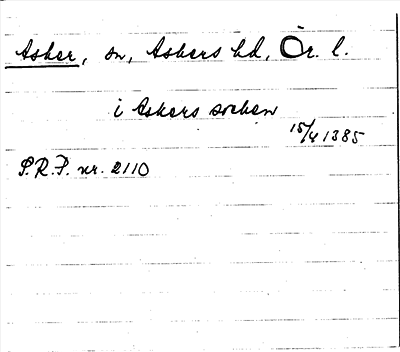 Asker, sn, Askers hd, Ör. l.
i Askers sochen
15/4 1385
S.R.P. nr. 2110